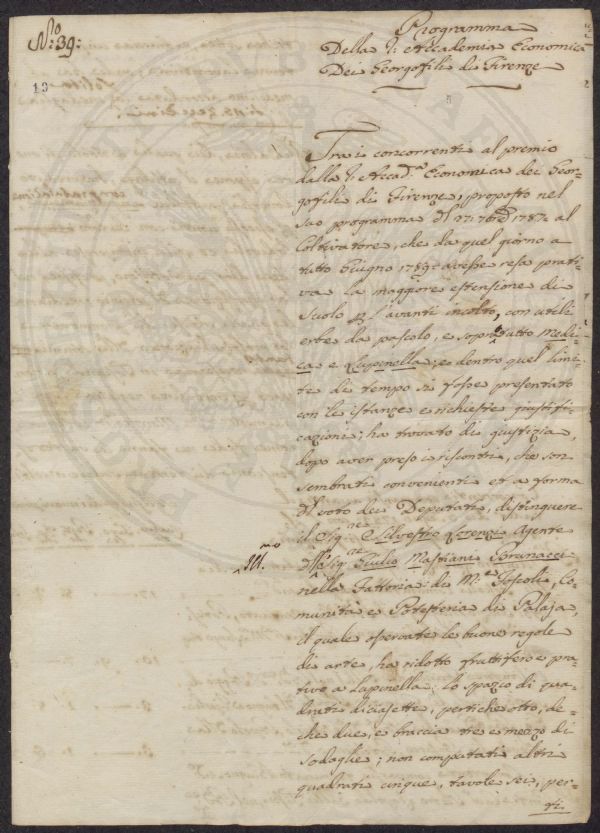 N.º 39:
19
Programma
Della I: Accademia Economica
Dei Georgofili di Firenze
Tra i concorrenti al premio
dalla I: Accad.ª Economica dei Geor-
gofili di Firenze, proposto nel
suo programma del 27: 7bre 1787: al
Coltivatore, che da quel giorno a
tutto Giugno 1789: avesse resa prati-
va la maggiore estensione di
suolo p. l'avanti incolto, con utili
erbe da pascolo, e soprattutto Medi-
ca e Lupinella; e dentro quel limi-
te di tempo si fosse presentato
con le istanze e richieste giustifi-
cazioni; ha trovato di giustizia,
dopo aver preso i riscontri, che son
sembrati convenienti et a forma
del voto dei Deputati, distinguere
il Sig.re Silvestro Lorenzi Agente
Ill.mo
dell' Sig.re Giulio Mastiani Brunacci
nella Fattoria di M.te Foscoli, Co-
munità e Potesteria di Palaja,
il quale osservate le buone regole
di arte, ha ridotto fruttifero e pra-
tivo a Lupinella: lo spazio di qua-
drati diciasette, pertiche otto, de-
che due, e braccia tre e mezzo di
sodaglie; non computati altri
quadrati cinque, tavole sei, per-
ti-